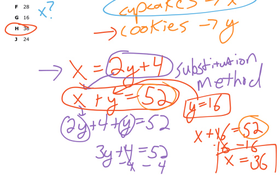 F 28
G 16
H 36
J 24
x?
cupcakes → x
→ cookies → y
→ x = 2y+4
substitution
method
x + y = 52
y = 16
2y+4+y = 52
3y+4 = 52
-4 -4
x + 16 = 52
-16 -16
x = 36